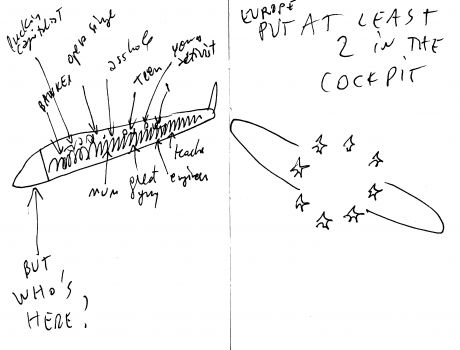 fucking
capitalist
BANKER
opera singer
asshole
TEEN
young
activist
teacher
engineer
great
guy
mum
BUT
WHO'S
HERE?
EUROPE
PUT AT LEAST
2 IN THE
COCKPIT